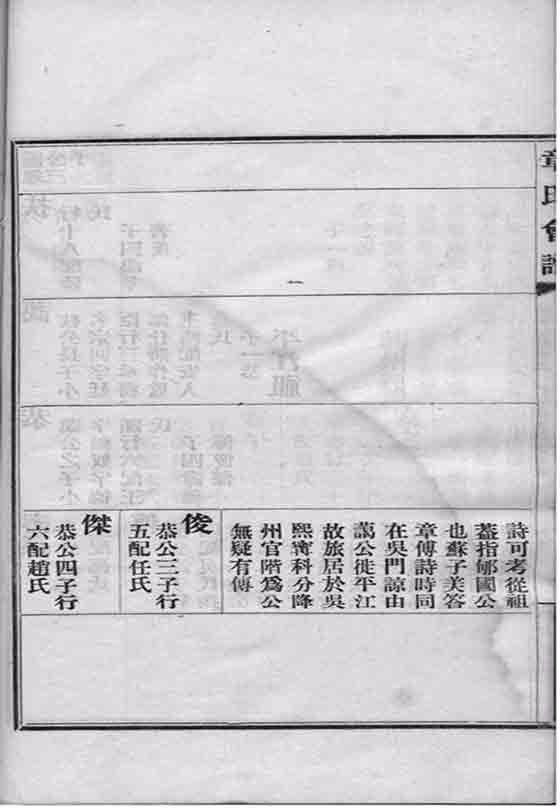 章氏會譜
詩可考從祖
蓋指郇國公
也蘇子美答
章傅詩時同
在吳門諒由
藹公徙平江
故旅居於吳
熙寧科分降
州官階爲公
無疑有傳
俊
恭公三子行
五配任氏
傑
恭公四子行
六配趙氏